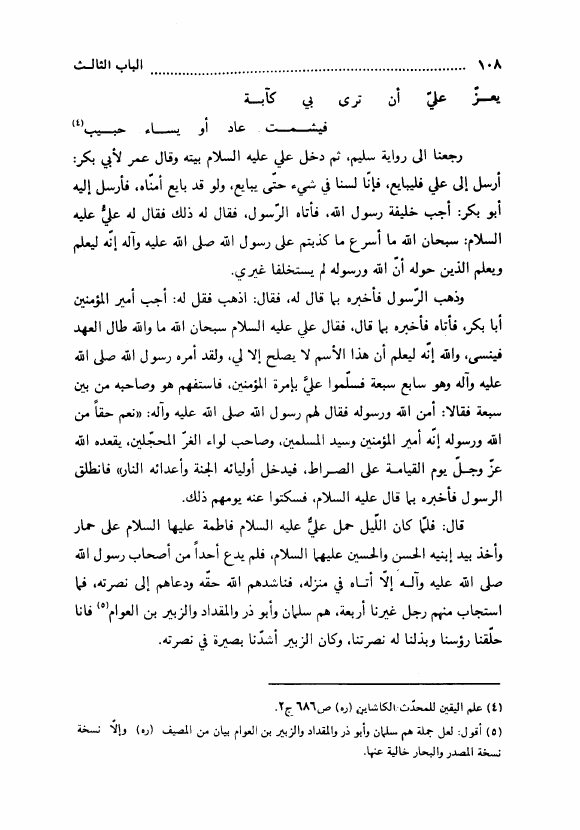 ١٠٨ ........................................ الباب الثالث
يعـزّ عليّ أن ترى بي كآبـة
فيشمـت عاد أو يسـاء حبـيب(٤)
رجعنا الى رواية سليم، ثم دخل علي عليه السلام بيته وقال عمر لأبي بكر:
أرسل إلى علي فليبايع، فإنّا لسنا في شيء حتّى يبايع، ولو قد بايع أمنّاه، فأرسل إليه
أبو بكر: أجب خليفة رسول الله، فأتاه الرّسول، فقال له ذلك فقال له عليُّ عليه
السلام: سبحان الله ما أسرع ما كذبتم على رسول الله صلى الله عليه وآله إنّه ليعلم
ويعلم الذين حوله أنّ الله ورسوله لم يستخلفا غيري.
وذهب الرّسول فأخبره بما قال له، فقال: اذهب فقل له: أجب أمير المؤمنين
أبا بكر، فأتاه فأخبره بما قال، فقال علي عليه السلام سبحان الله ما والله طال العهد
فينسى، والله إنّه ليعلم أن هذا الأسم لا يصلح إلا لي، ولقد أمره رسول الله صلى الله
عليه وآله وهو سابع سبعة فسلّموا عليَّ بإمرة المؤمنين، فاستفهم هو وصاحبه من بين
سبعة فقالا: أمن الله ورسوله فقال لهم رسول الله صلى الله عليه وآله: «نعم حقاً من
الله ورسوله إنّه أمير المؤمنين وسيد المسلمين، وصاحب لواء الغرّ المحجّلين، يقعده الله
عزّ وجـلّ يوم القيامـة على الصـراط، فيدخل أوليائه الجنة وأعدائه النار» فانطلق
الرسول فأخبره بما قال عليه السلام، فسكتوا عنه يومهم ذلك.
قال: فلمّا كان اللّيل حمل عليُّ عليه السلام فاطمة عليها السلام على حمار
وأخذ بيد إبنيه الحسن والحسين عليهما السلام، فلم يدع أحداً من أصحاب رسول الله
صلى الله عليه وآلـه إلّا أتـاه في منزله، فناشدهم الله حقّه ودعاهم إلى نصرته، فما
استجاب منهم رجل غيرنا أربعة، هم سلمان وأبو ذر والمقداد والزبير بن العوام(٥) فانا
حلّقنا رؤسنا وبذلنا له نصرتنا، وكان الزبير أشدّنا بصيرة في نصرته.
(٤) علم اليقين للمحدّث الكاشاني (ره) ص٦٨٦ ج٢.
(٥) أقول: لعل جملة هم سلمان وأبو ذر والمقداد والزبير بن العوام بيان من المصيف (ره) وإلّا نسخة
نسخة المصدر والبحار خالية عنها.